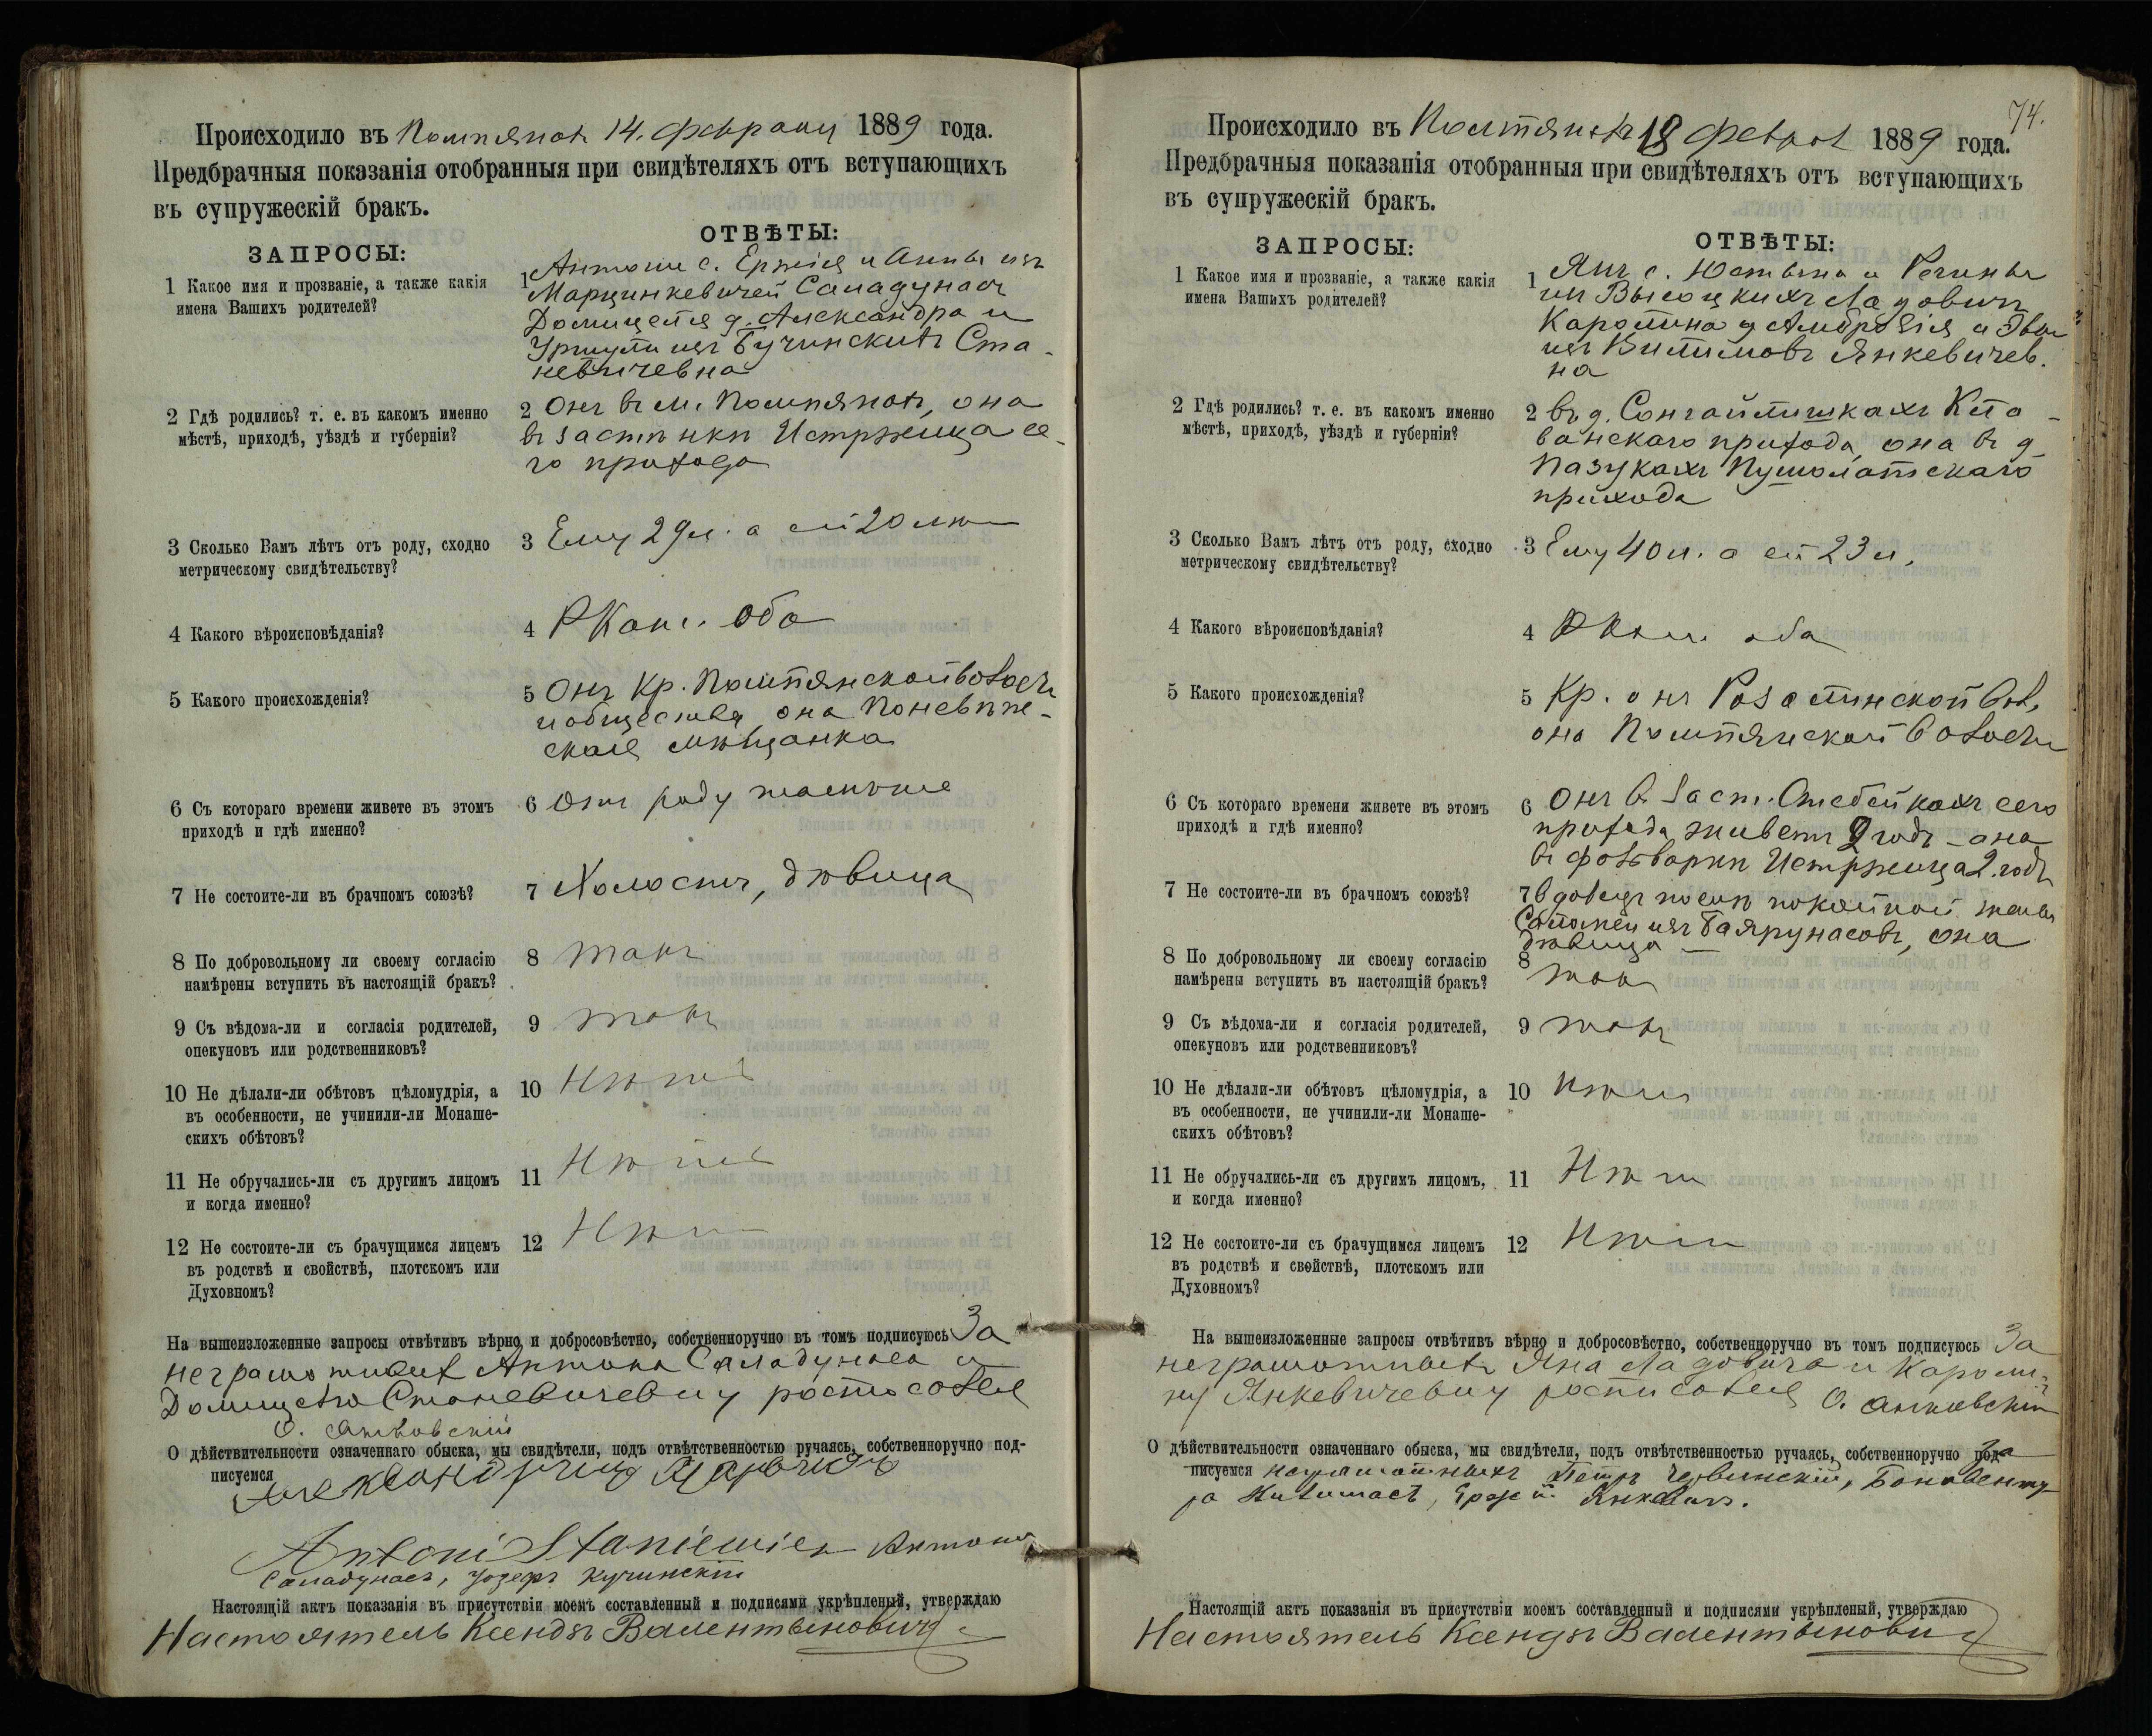 Происходило въ Помпянахъ 14. февраля 1889 года.
Предбрачныя показанія отобранныя при свидѣтеляхъ отъ вступающихъ
въ супружескій бракъ.
ЗАПРОСЫ:
ОТВѢТЫ:
1 Какое имя и прозваніе, а также какія
имена Вашихъ родителей?
1 Антони с. Ержія и Анны изъ
Марцинкевичей Саладунасъ
Домицеля д. Александра и
Уршули изъ Бучинскихъ Ста-
невичевна
2 Гдѣ родились? т. е. въ какомъ именно
мѣстѣ, приходѣ, уѣздѣ и губерніи?
2 Онъ въ м. Помпянахъ, она
въ застѣнкѣ Истржица се-
го прихода
3 Сколько Вамъ лѣтъ отъ роду, сходно
метрическому свидѣтельству?
3 Ему 29 л. а ей 20 лѣт
4 Какого вѣроисповѣданія?
4 РКат. оба
5 Какого происхожденія?
5 Онъ Кр. Помпянской волости
и общества, она Поневѣж-
ская мѣщанка
6 Съ котораго времени живете въ этомъ
приходѣ и гдѣ именно?
6 Отъ роду
7 Не состоите-ли въ брачномъ союзѣ?
7 Холостъ, дѣвица
8 По добровольному ли своему согласію
намѣрены вступить въ настоящій бракъ?
8 такъ
9 Съ вѣдома-ли и согласія родителей,
опекуновъ или родственниковъ?
9 такъ
10 Не дѣлали-ли обѣтовъ цѣломудрія, а
въ особенности, не учинили-ли Монаше-
скихъ обѣтовъ?
10 Нѣтъ
11 Не обручались-ли съ другимъ лицомъ
и когда именно?
11 Нѣтъ
12 Не состоите-ли съ брачущимся лицемъ
въ родствѣ и свойствѣ, плотскомъ или
Духовномъ?
12 Нѣтъ
На вышеизложенные запросы отвѣтивъ вѣрно и добросовѣстно, собственноручно въ томъ подписуюсь За
неграмотныхъ Антона Саладунаса и
Домицелю Станевичевну росписался
О. Янковскій
О дѣйствительности означеннаго обыска, мы свидѣтели, подъ отвѣтственностью ручаясь, собственноручно под-
писуемся
Antoni Staniewicz Антони
Саладунасъ, Юзефъ Кучинскій
Настоящій актъ показанія въ присутствіи моемъ составленный и подписями укрѣпленый, утверждаю
Настоятель Ксендзъ Валентыновичъ
74.
Происходило въ Помпянахъ 18 февраля 1889 года.
Предбрачныя показанія отобранныя при свидѣтеляхъ отъ вступающихъ
въ супружескій бракъ.
ЗАПРОСЫ:
ОТВѢТЫ:
1 Какое имя и прозваніе, а также какія
имена Вашихъ родителей?
1 Янъ с. Юстына и Регины
изъ Высоцкихъ Ладовичъ
Каролина д Амброзія и Эвы
изъ Витимовъ Янкевичев-
на
2 Гдѣ родились? т. е. въ какомъ именно
мѣстѣ, приходѣ, уѣздѣ и губерніи?
2 въ д. Сонгайлишкахъ Кло-
ванскаго прихода, она въ д
Пазукахъ Пушолатскаго
прихода
3 Сколько Вамъ лѣтъ отъ роду, сходно
метрическому свидѣтельству?
3 Ему 40 л. а ей 23 л.
4 Какого вѣроисповѣданія?
4 РКат. оба
5 Какого происхожденія?
5 Кр. онъ Розалинской вол.
она Помпянской волости
6 Съ котораго времени живете въ этомъ
приходѣ и гдѣ именно?
6 Онъ въ заст. Стебейкахъ сего
прихода живетъ 2 годъ она
въ фольваркѣ Истржица 2. годъ
7 Не состоите-ли въ брачномъ союзѣ?
7 вдовецъ послѣ покойной жены
Саломеи изъ Баярунасовъ, она
дѣвица
8 По добровольному ли своему согласію
намѣрены вступить въ настоящій бракъ?
8 такъ
9 Съ вѣдома-ли и согласія родителей,
опекуновъ или родственниковъ?
9 такъ
10 Не дѣлали-ли обѣтовъ цѣломудрія, а
въ особенности, не учинили-ли Монаше-
скихъ обѣтовъ?
10 Нѣтъ
11 Не обручались-ли съ другимъ лицомъ,
и когда именно?
11 Нѣтъ
12 Не состоите-ли съ брачущимся лицемъ
въ родствѣ и свойствѣ, плотскомъ или
Духовномъ?
12 Нѣтъ
На вышеизложенные запросы отвѣтивъ вѣрно и добросовѣстно, собственноручно въ томъ подписуюсь За
неграмотныхъ Яна Ладовича и Кароли-
ну Янкевичевну росписался О. Янковскій
О дѣйствительности означеннаго обыска, мы свидѣтели, подъ отвѣтственностью ручаясь, собственноручно под- За
писуемся неграмотныхъ Петръ Червинскій, Бонавенту-
ра Ержій Янкевичъ.
Настоящій актъ показанія въ присутствіи моемъ составленный и подписями укрѣпленый, утверждаю
Настоятель Ксендзъ Валентыновичъ